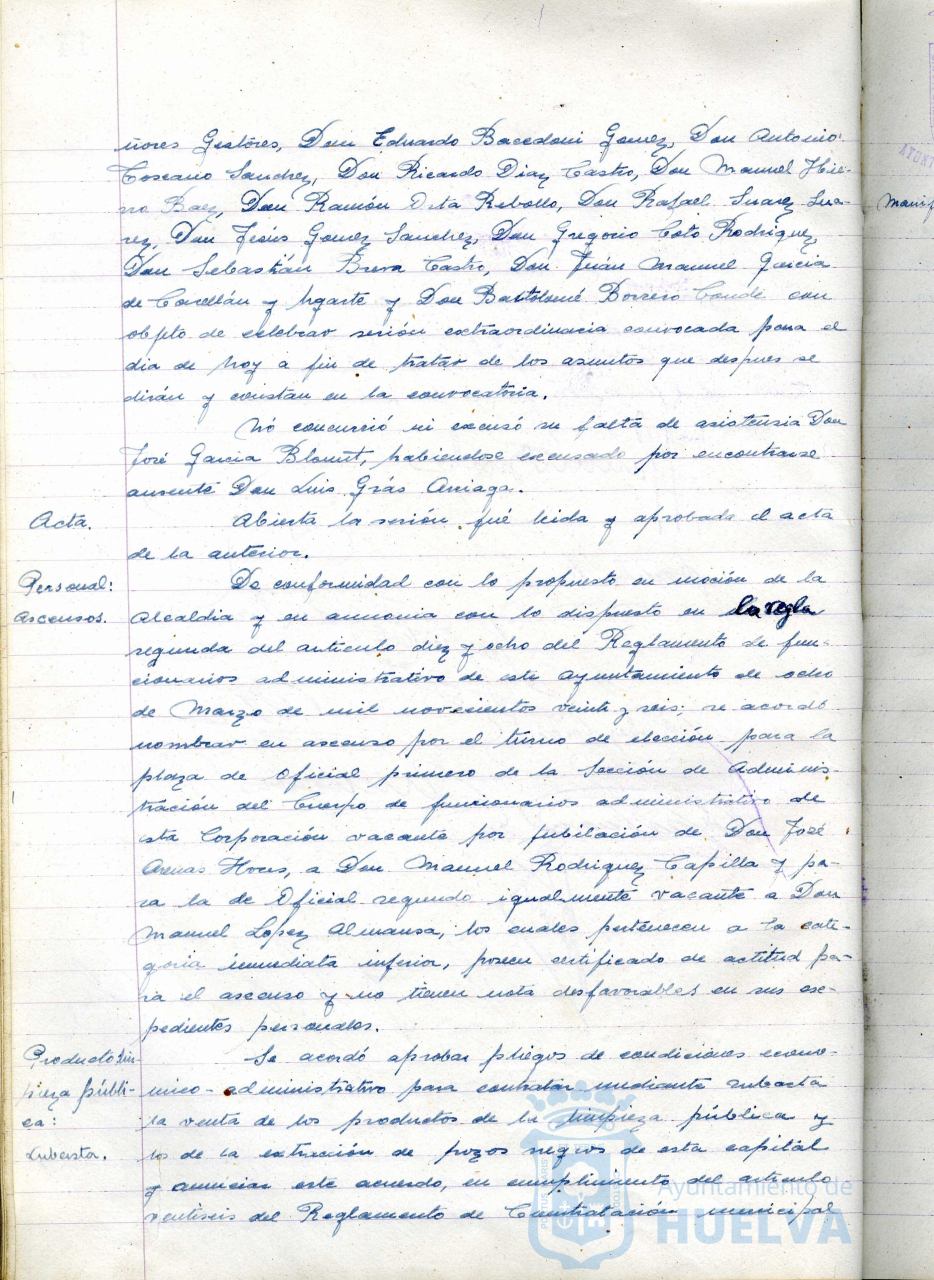 ñores Gestores, Don Eduardo Bacedoni Gomez, Don Antonio
Toscano Sanchez, Don Ricardo Diaz Castro, Don Manuel Hie-
rro Baez, Don Ramón Orta Rebollo, Don Rafael Suarez Sua-
rez, Don Jesús Gomez Sanchez, Don Gregorio Coto Rodriguez,
Don Sebastián Breva Castro, Don Juán Manuel Garcia
de Cavellán y Ugarte y Don Bartolomé Borrero Conde con
objeto de celebrar sesión extraordinaria convocada para el
dia de hoy a fin de tratar de los asuntos que despues se
dirán y constan en la convocatoria.
No concurrió ni excusó su falta de asistensia Don
José Garcia Blount, habiendose excusado por encontrarse
ausente Don Luis Grás Arriaga.
Acta.
Abierta la sesión fué leida y aprobada el acta
de la anterior.
Personal:
Ascensos.
De conformidad con lo propuesto en moción de la
Alcaldia y en armonia con lo dispuesto en la regla
segunda del articulo diez y ocho del Reglamento de fun-
cionarios administrativo de este Ayuntamiento de ocho
de Marzo de mil novecientos veinte y seis; se acordó
nombrar en ascenso por el turno de elección para la
plaza de Oficial primero de la Sección de Adminis-
tración del Cuerpo de funcionarios administrativo de
esta Corporación vacante por jubilación de Don José
Arenas Hoces, a Don Manuel Rodriguez Capilla y pa-
ra la de Oficial segundo igualmente vacante a Don
Manuel Lopez Almansa, los cuales pertenecen a la cate-
goria inmediata inferior, poseen certificado de actitud pa-
ra el ascenso y no tienen nota desfavorables en sus ex-
pedientes personales.
Producto lim-
pieza públi-
ca:
Subasta.
Se acordó aprobar pliegos de condiciones econo-
mico-administrativo para contratar mediante subasta
la venta de los productos de la limpieza pública y
los de la extracción de pozos negros de esta capital
y anunciar este acuerdo, en cumplimiento del articulo
ventiseis del Reglamento de Contratación municipal
Manif
Ayuntamiento de
HUELVA